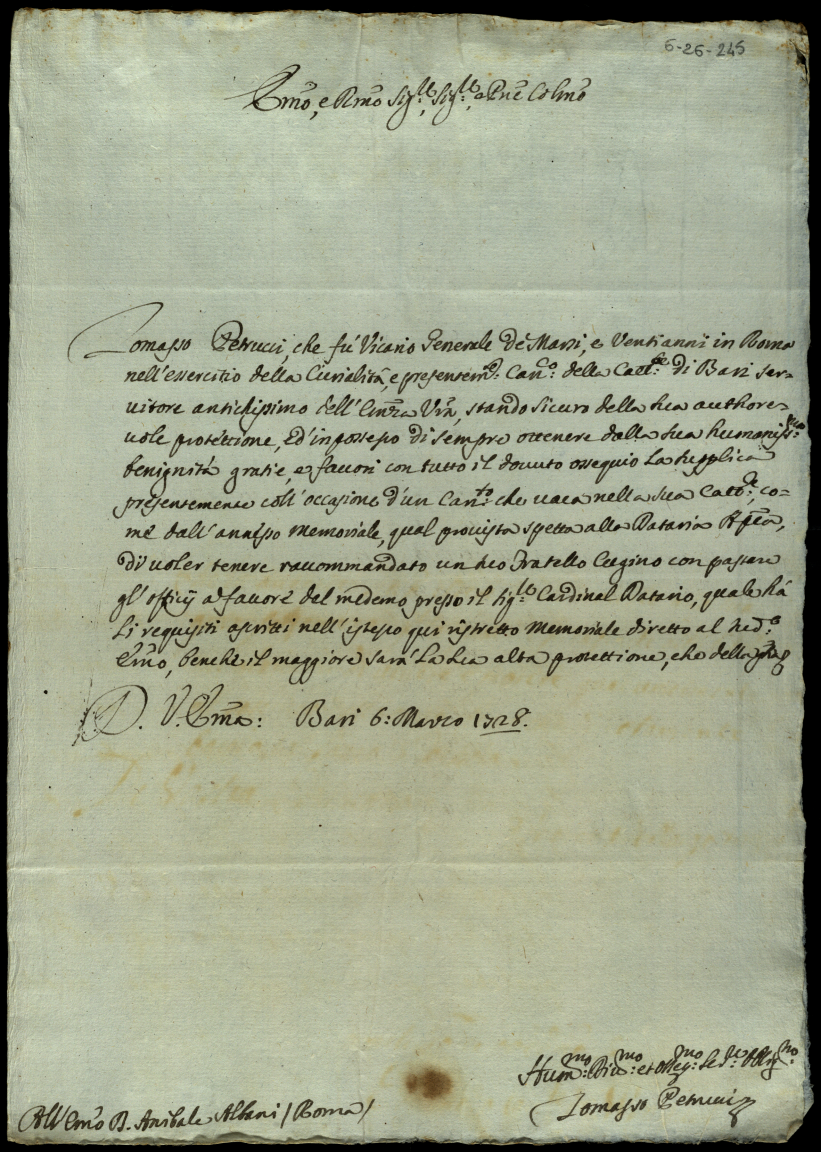 6-26-245
Emõ, e Rmõ Sig.re, Sig.re, e Pñe Colmõ
Tomasso Petrucci, che fù Vicario Generale de Marsi, e Venti anni in Roma
nell'essercitio della Curialità, e presentem.e Can.co della Catt.le di Bari ser-
uitore antichissimo dell'Emza Vrã, stando sicuro della sua authore-
uole protettione, ed'in possesso di sempre ottenere dalla sua humaniss.ma
benignità gratie, e fauori con tutto il douuto ossequio La supplica
presentemente coll'occasione d'un Can.to che uaca nella sua Catt.le, co-
me dall'annesso Memoriale, qual prouista spetta alla Dataria Apĩca,
di uoler tenere raccommandato un suo Fratello Cugino con passare
gl'officij à fauore del medemo presso il Sig.re Cardinal Datario, quale hà
Li requisiti ascritti nell'istesso qui ristretto Memoriale diretto al sud.o
Emõ, benche il maggiore sarà La sua alta protettione, che della
D. V. Emã: Bari 6: Marzo 1728.
Hum.mo Diu.mo et osseq.mo Se.re Obblig.mo
Tomasso Petrucci
All'Emõ D. Anibale Albani / Roma /